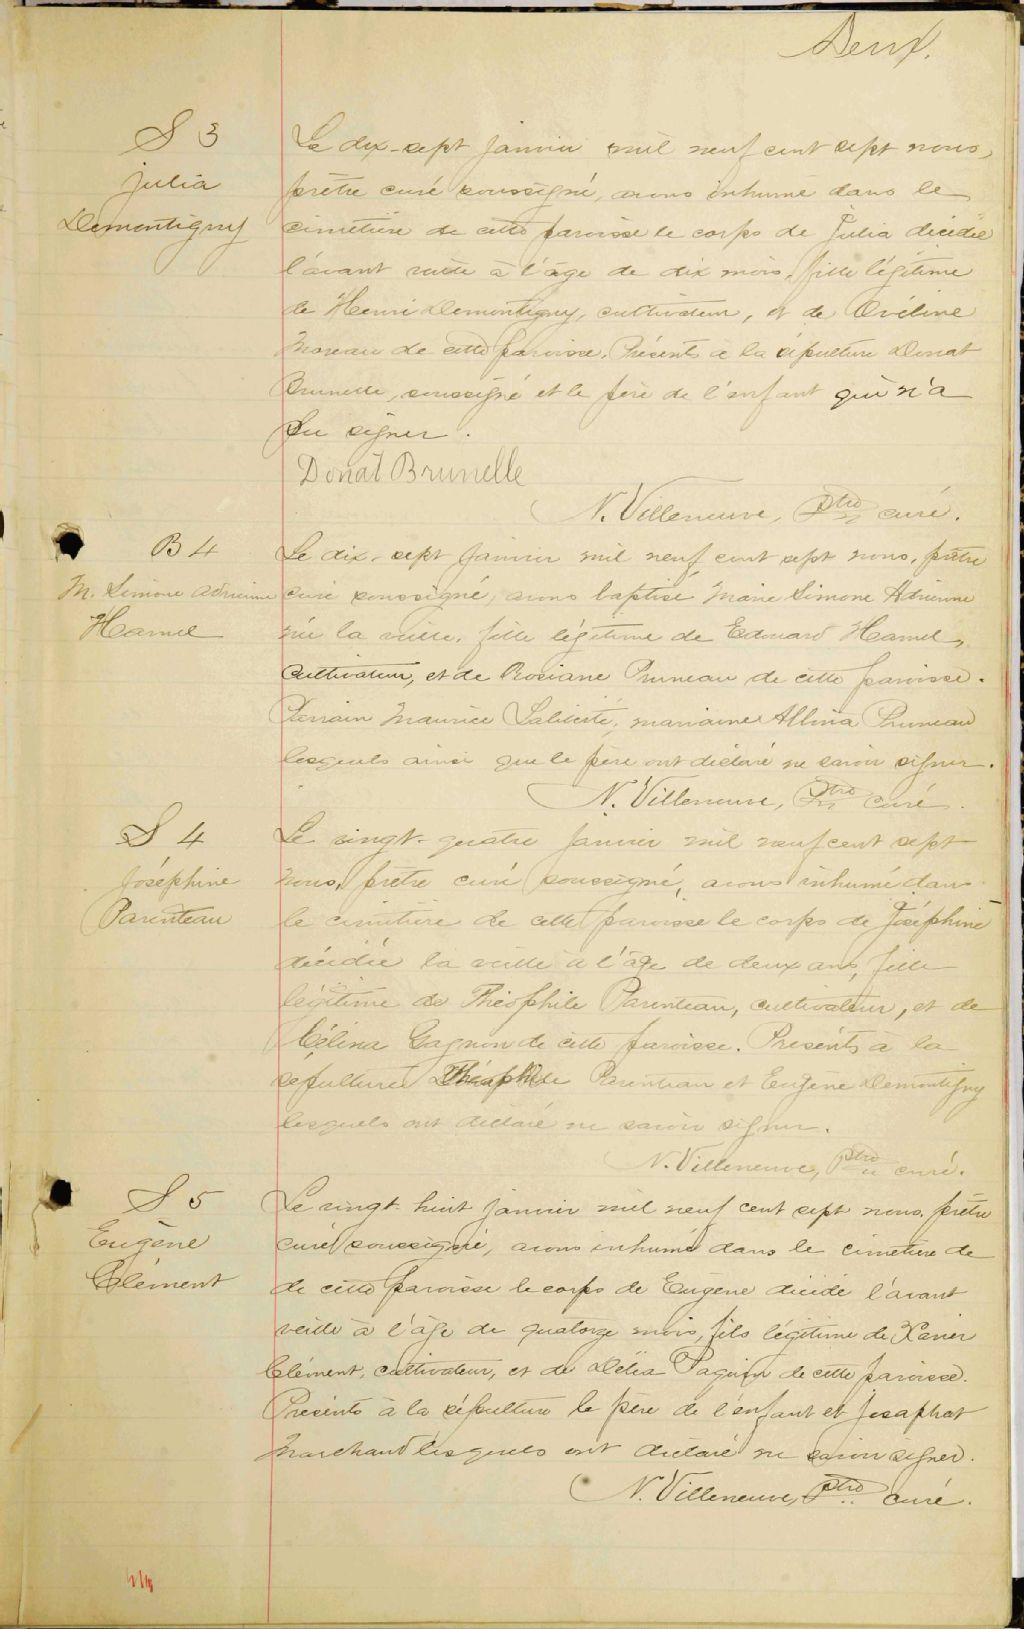 Deux.
S 3
Julia
Demontigny
Le dix-sept janvier mil neuf cent sept nous,
prêtre curé soussigné, avons inhumé dans le
cimetière de cette paroisse le corps de Julia décédée
l'avant veille à l'âge de dix mois, fille légitime
de Henri Demontigny, cultivateur, et de Evéline
Moreau de cette paroisse. Présents à la sépulture Donat
Brunelle, soussigné et le père de l'enfant qui n'a
pu signer.
Donat Brunelle
N. Villeneuve, ptre curé.
B 4
M. Simone Adrienne
Hamel
Le dix-sept janvier mil neuf cent sept nous, prêtre
curé soussigné, avons baptisé Marie Simone Adrienne
née la veille, fille légitime de Edouard Hamel,
cultivateur, et de Rosiane Pruneau de cette paroisse.
Parrain Maurice Laliberté, marraine Albina Pruneau
lesquels ainsi que le père ont déclaré ne savoir signer.
N. Villeneuve, ptre curé.
S 4
Joséphine
Parenteau
Le vingt-quatre janvier mil neuf cent sept
nous, prêtre curé soussigné, avons inhumé dans
le cimetière de cette paroisse le corps de Joséphine
décédée la veille à l'âge de deux ans, fille
légitime de Théophile Parenteau, cultivateur, et de
Célina Gagnon de cette paroisse. Présents à la
sépulture Théophile Parenteau et Eugène Demontigny
lesquels ont déclaré ne savoir signer.
N. Villeneuve, ptre curé.
S 5
Eugène
Clément
Le vingt-huit janvier mil neuf cent sept nous, prêtre
curé soussigné, avons inhumé dans le cimetière de
de cette paroisse le corps de Eugène décédé l'avant
veille à l'âge de quatorze mois, fils légitime de Xavier
Clément, cultivateur, et de Délia Paquin de cette paroisse.
Présents à la sépulture le père de l'enfant et Josaphat
Marchand lesquels ont déclaré ne savoir signer.
N. Villeneuve, ptre curé.